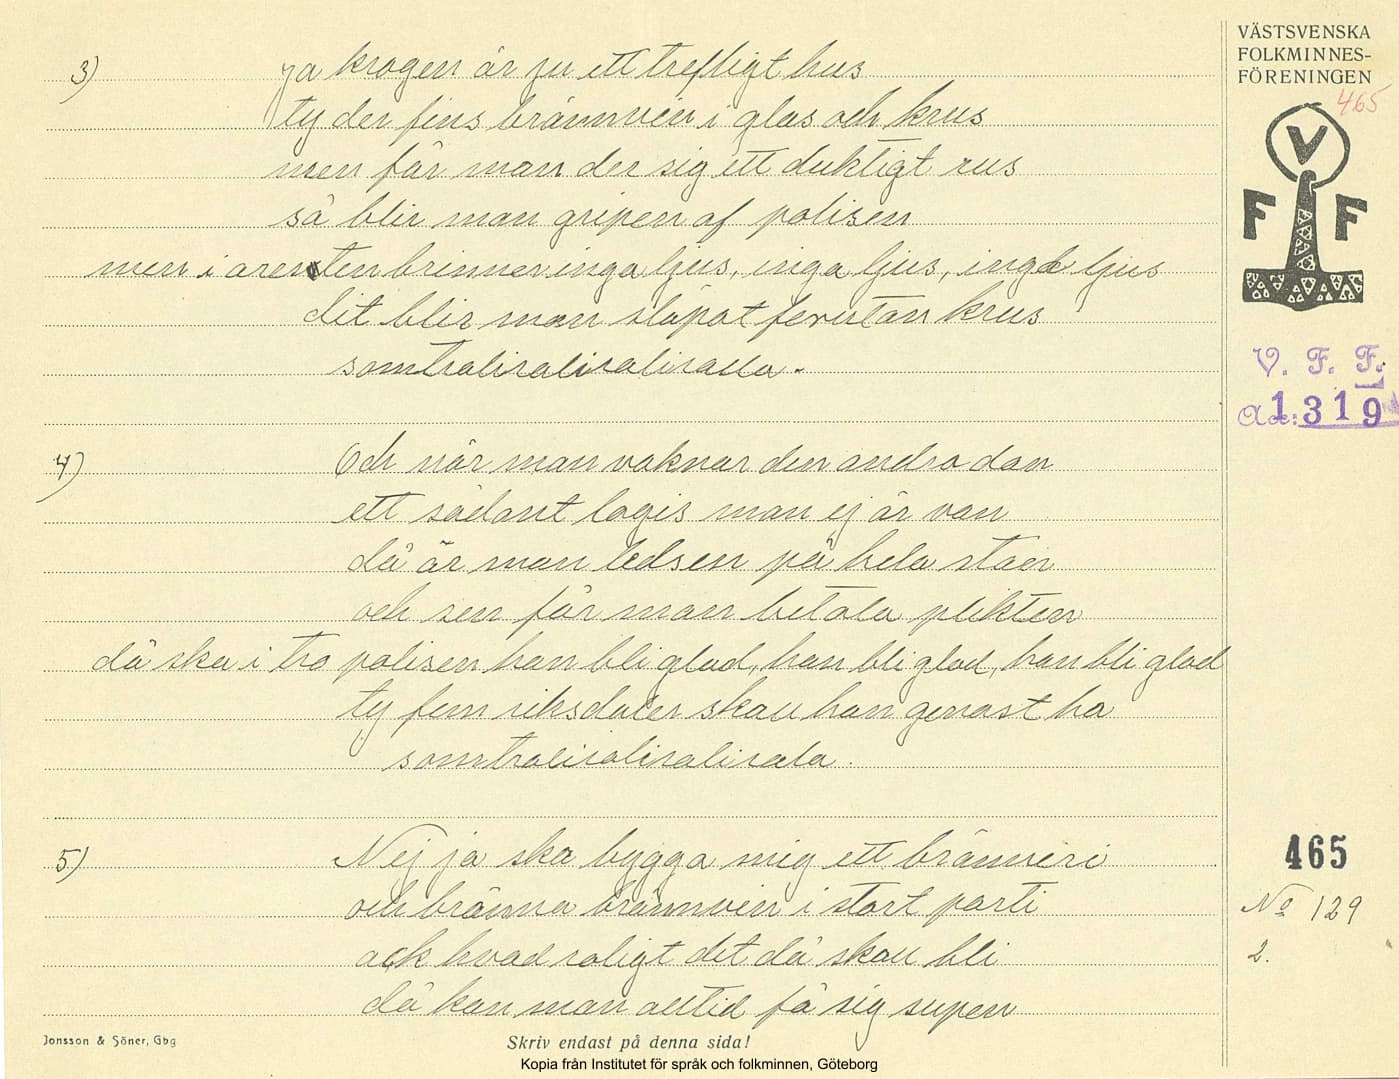 VÄSTSVENSKA
FOLKMINNES-
FÖRENINGEN
465
V
F F
V. F. F.
Ac: 1319
3) ja krogen är ju ett trefligt hus
ty der fins brännvin i glas och krus
men får man der sig ett duktigt rus
så blir man gripen af polisen
men i aresten brinner inga ljus, inga ljus, inga ljus
dit blir man släpat förutan krus
somtraliraliraliralla.
4) Och när man vaknar den andra dan
ett sådant logis man ej är van
då är man ledsen på hela stan
och sen får man betala plikten
då ska i tro polisen han bli glad, han bli glad, han bli glad
ty fem riksdaler skall han genast ha
somtraliraliralirala.
5) Nej ja ska bygga mig ett bränneri
och bränna brännvin i stort parti
ack hvad roligt det då skall bli
då kan man alltid få sig supen
465
No 129
2.
Jonsson & Söner, Gbg
Skriv endast på denna sida!
Kopia från Institutet för språk och folkminnen, Göteborg